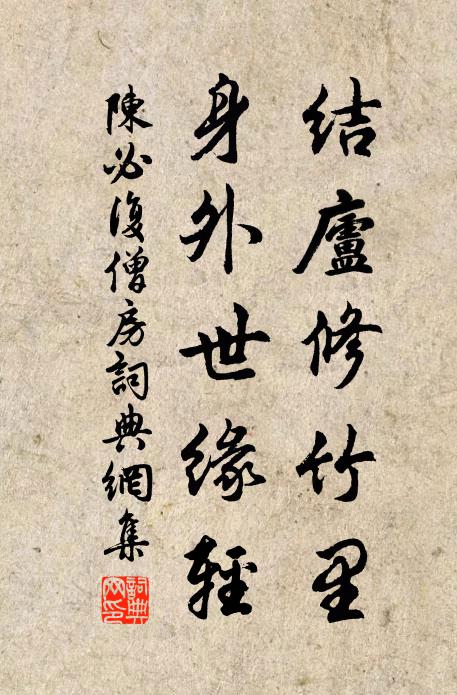 結廬修竹里
身外世緣輕
陳必復僧房詞典網集
詞典網印